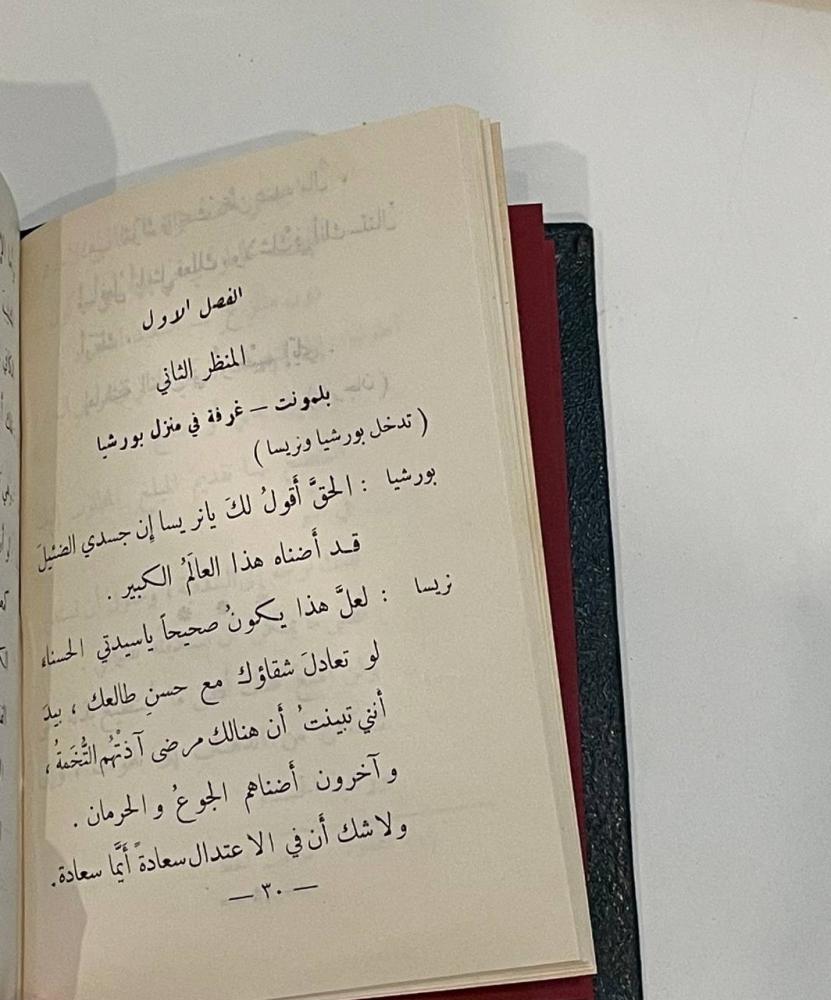 الفصل الاول
المنظر الثاني
بلمونت – غرفة في منزل بورشيا
( تدخل بورشيا ونزيسا )
بورشيا : الحقَّ أَقولُ لكَ يانريسا إِن جسدي الضئيلَ
قد أَضناه هذا العالَمُ الكبير .
نزيسا : لعلَّ هذا يكونُ صحيحاً ياسيدتي الحسناء
لو تعادلَ شقاؤك مع حسنِ طالعك ، بيدَ
أنني تبينتُ أَن هنالك مرضى آذتْهُم التُّخَمَةُ ،
وآخرون أَضناهم الجوعُ والحرمان .
ولاشك أَن في الاعتدال سعادةً أَيَّما سعادة.
— ٣٠ —